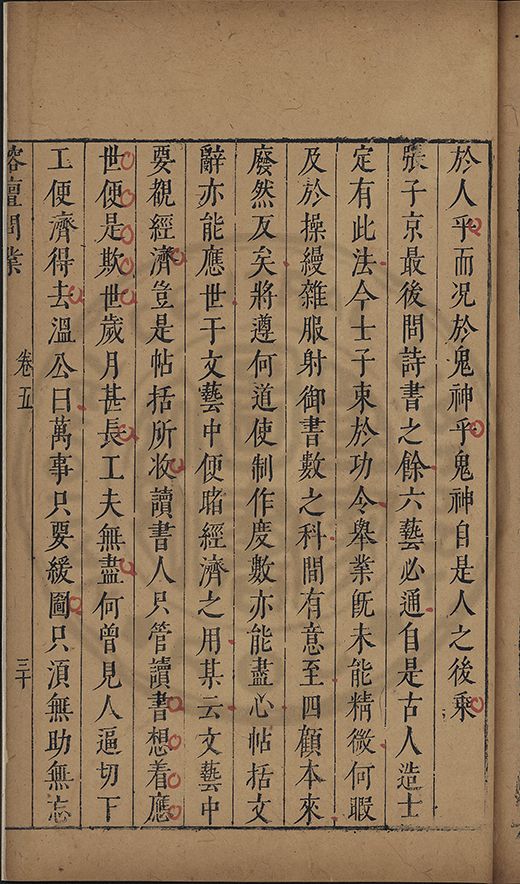 於人乎而况於鬼神乎鬼神自是人之後乘
張子京最後問詩書之餘六藝必通自是古人造士
定有此法今士子束於功令舉業旣未能精微何暇
及於操縵雜服射御書數之科間有意至四顧本來
廢然反矣將遵何道使制作度數亦能盡心帖括文
辭亦能應世于文藝中便睹經濟之用某云文藝中
要觀經濟豈是帖括所收讀書人只管讀書想着應
世便是欺世歲月甚長工夫無盡何曾見人逼切下
工便濟得去溫公曰萬事只要緩圖只須無助無忘
榕壇問業
卷五
三十